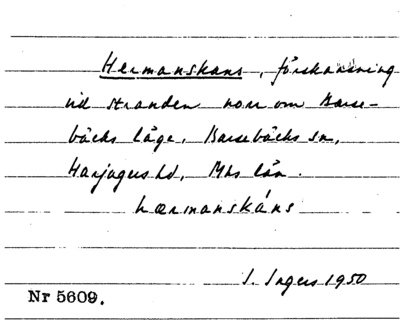 Hermanskans, förskansning
vid stranden norr om Barse-
bäcks läge, Barsebäcks sn,
Harjagers hd, Mhs län.
hærmanskáns
I. Ingers 1950
Nr 5609.